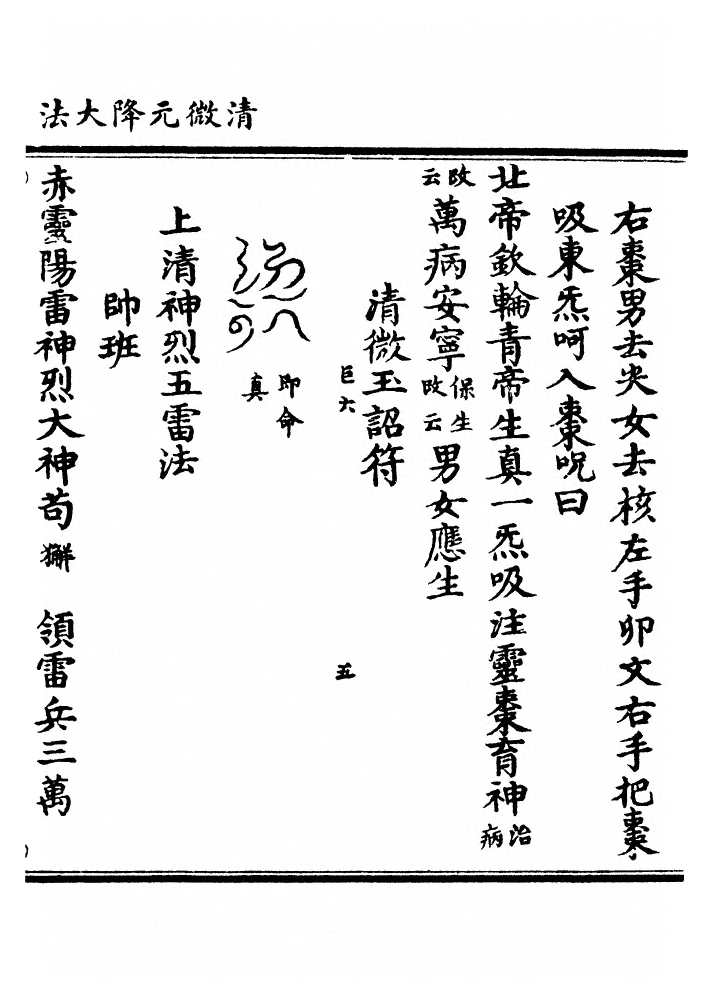 清微元降大法
右棗男去尖女去核左手卯文右手把棗
吸東炁呵入棗呪曰
北帝欽輪青帝生真一炁吸注靈棗育神治病
改云萬病安寧保生改云男女應生
清微玉詔符
巨六
五
即命
真
上清神烈五雷法
帥班
赤靈陽雷神烈大神苟獬 領雷兵三萬